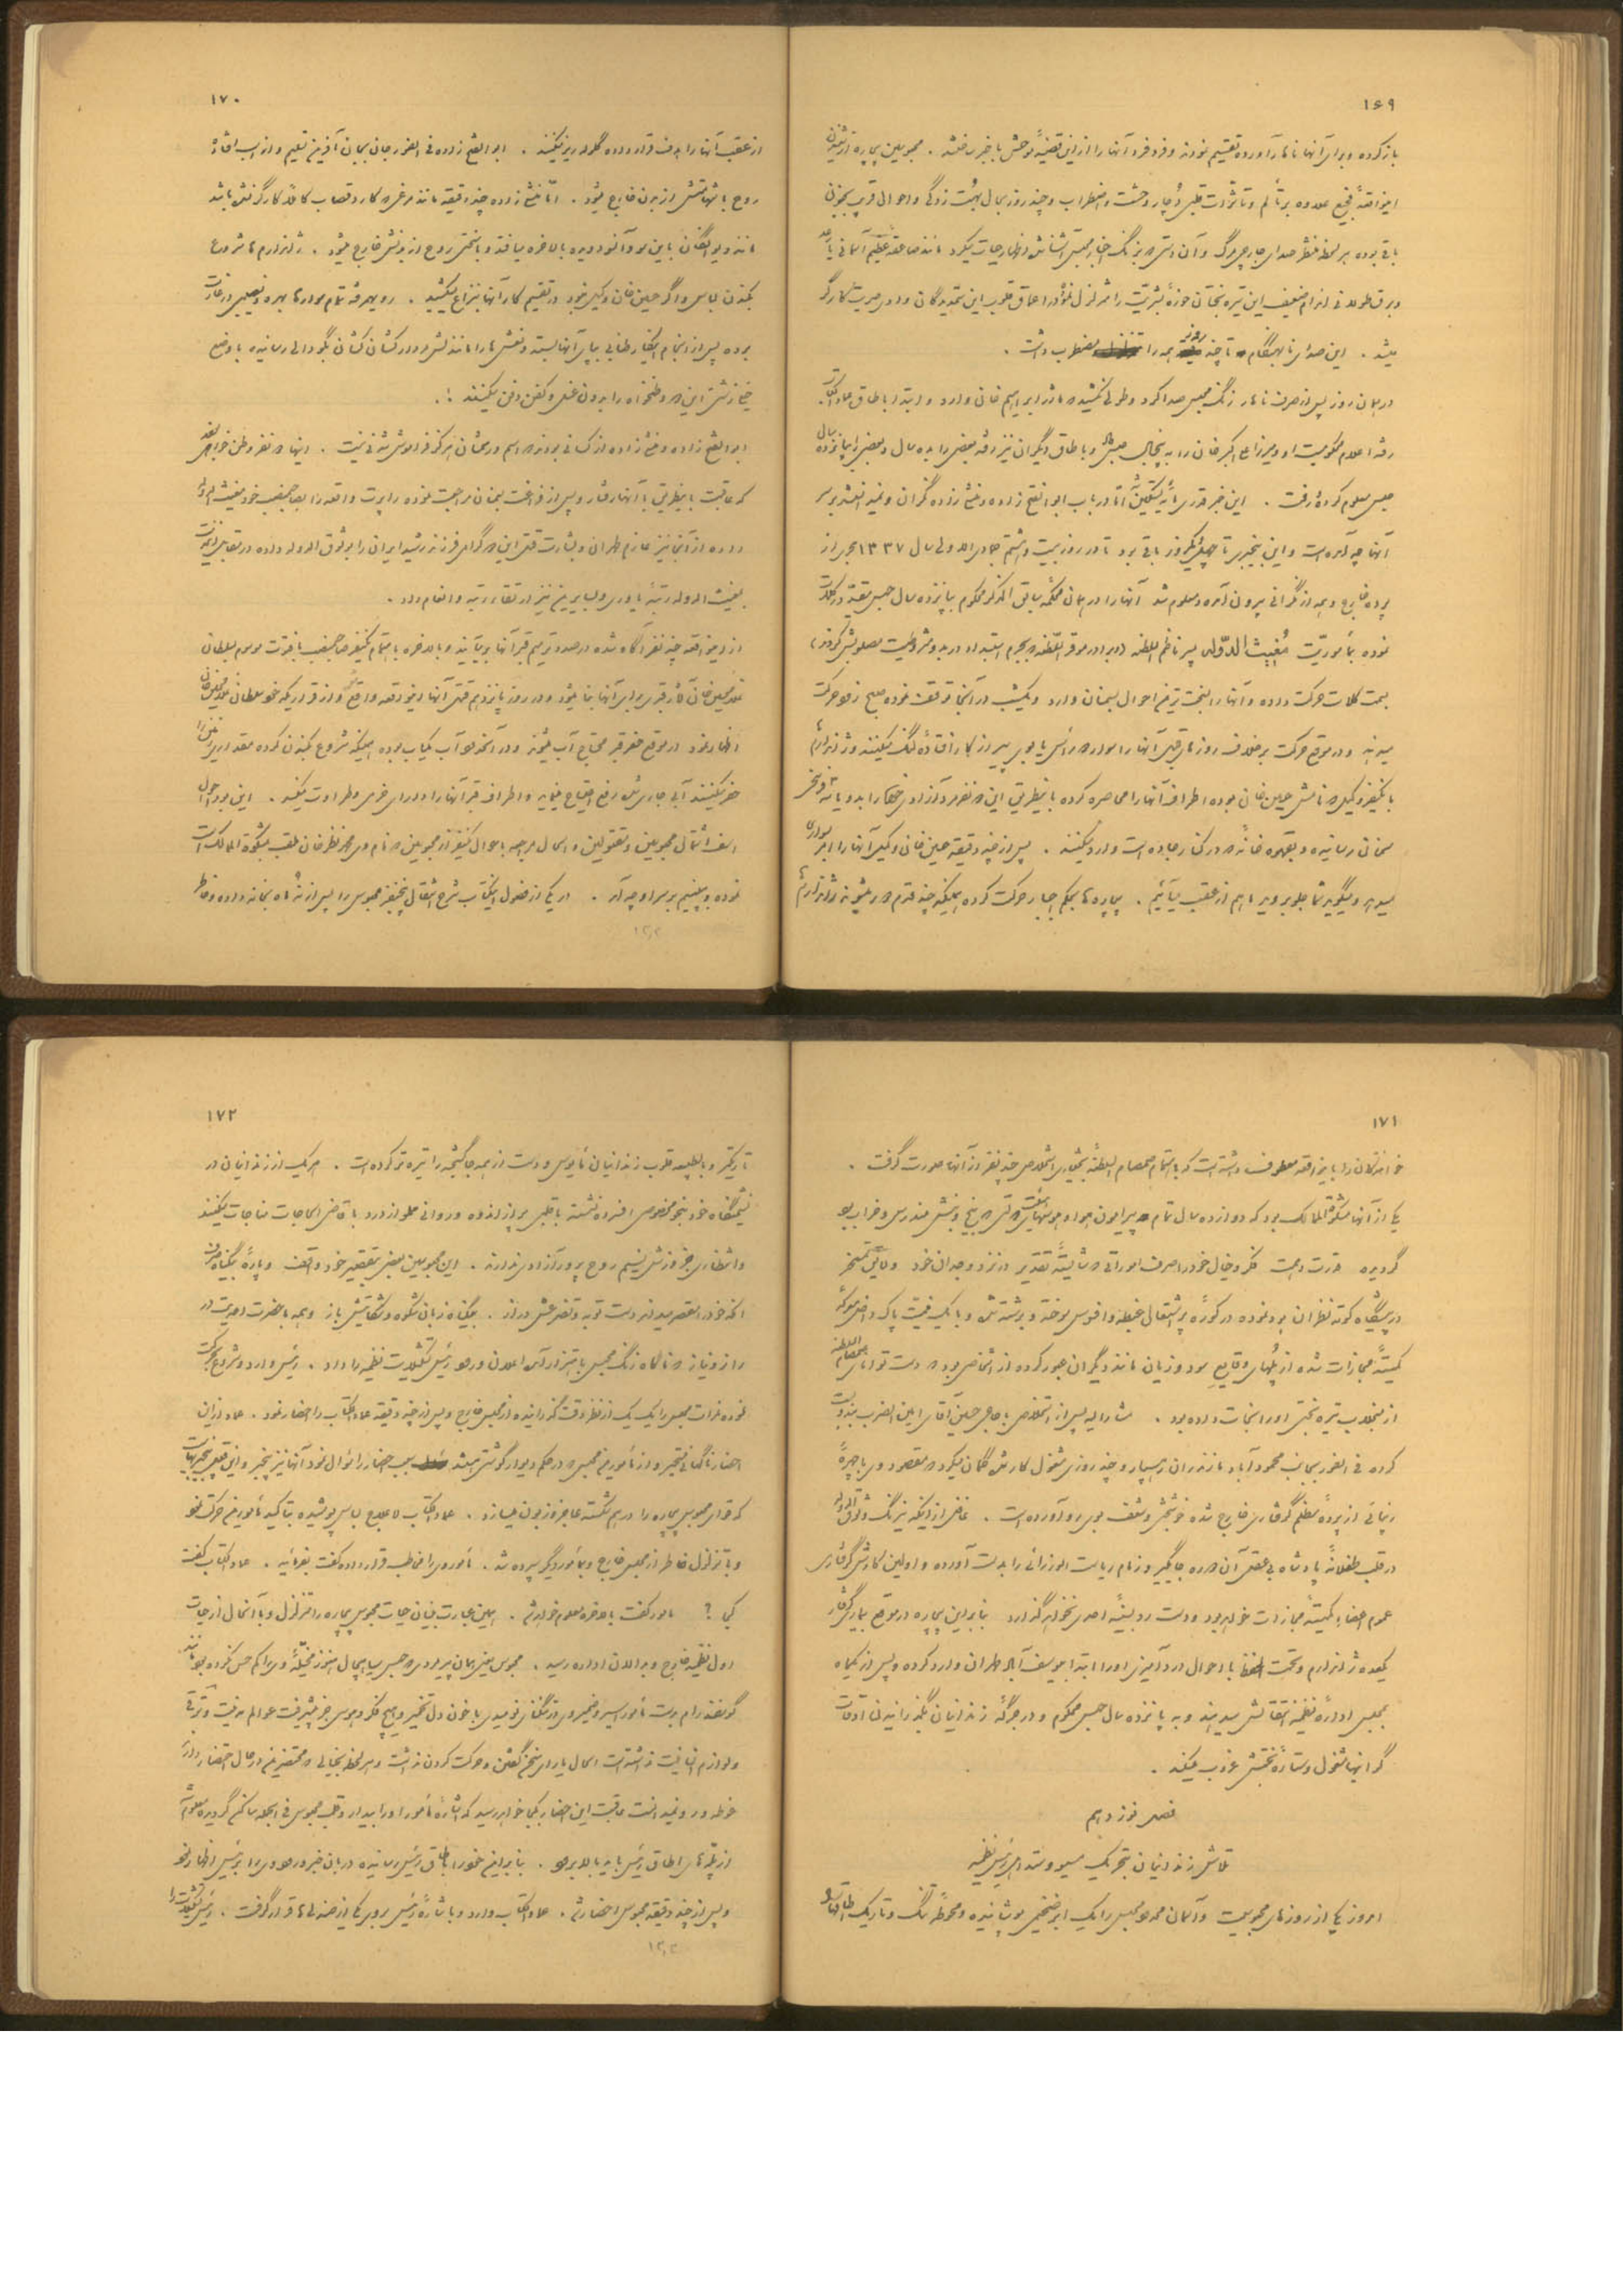 ۱۶۹
باز کرده و برای آنها ناهار آورده تقسیم نمودند و فرد فرد آنها را از این قضیهٔ موحش باخبر ساختند . محبوسین بیچاره از شنیدن
این واقعهٔ فجیع علاوه بر تألم و تأثرات قلبی دچار وحشت و اضطراب و چند روز بحال بهت زدگی و احوالی قریب بجنون
باقی بوده هر لحظه منتظر صدای جارچی مرگ و آن
میشد . این صدای نابهنگام تا چند روز همه را مضطرب داشت .
در همان روز پس از صرف ناهار زنگ محبس صدا کرد و طولی نکشید که ماژر ابراهیم خان وارد و ابتدا باطاق عماد الکتاب
رفته اعلام محکومیت او و میرزا علی اکبر خان را به پنجسال حبس و باطاق دیگران نیز رفته بعضی را به ده سال و بعضی را بپانزده سال
حبس معلوم کرده و رفت . این خبر قدری مایهٔ تسکین شد اما در باب ابوالفتح زاده و منشی زاده نگران و نمیدانستند بر سر
آنها چه آمده است و این بیخبری تا چهل و یکروز باقی بود تا در روز بیست و هشتم جمادی الاولی سال ۱۳۳۷ هجری از
پرده خارج و همه از نگرانی بیرون آمده و معلوم شد آنها را در همان محکمهٔ سابق الذکر محکوم بپانزده سال حبس مقید در کلات
نموده بمأموریت مغیث الدوله پسر ناظم السلطنه
بسمت کلات حرکت داده و آنها را بسخت ترین احوال بسمنان وارد و یکشب در آنجا توقف نموده صبح زود حرکت
میدهند و در موقع حرکت برخلاف روزهای قبل آنها را سوار دو رأس یابوی پیر از کار افتادهٔ لنگ میکنند و ژاندارمها
با یکنفر وکیل که نامش حسین خان بوده اطراف آنها را محاصره کرده باینطریق این دو نفر مرد آزادی خواه را به دو یا سه فرسخی
سمنان رسانیده و بقهوه خانهٔ که در کنار جاده است وارد میکنند . پس از چند دقیقه حسین خان وکیل آنها را امر بسواری
میدهد و میگوید شما جلو بروید ما هم از عقب میآئیم . بیچاره ها بحکم اجبار حرکت کرده همینکه چند قدم دور میشوند ژاندارمها
۱۷۰
از عقب آنها را هدف قرار داده گلوله ریز میکنند . ابوالفتح زاده فی الفور جان بجان آفرین تسلیم و از اسب افتاده
روح با شهامتش از بدن خارج میشود . اما منشی زاده چند دقیقه مانند مرغی که کارد قصاب کاملا کارگر نشده باشد
مانند دیوانگان باین سو و آنسو دویده بالاخره میافتد و با سختی روح از بدنش خارج میشود . ژاندارمها شروع
بکندن لباس و اگر حسین خان وکیل نبود در تقسیم کار آنها بنزاع میکشید .
بوده پس از انجام اینکار طنابی بپای آنها بسته و نعش ها را مانند لش مردار کشان کشان بگودالی رسانیده با وضع
خیلی زشتی این دو وطنخواه را بدون غسل و کفن دفن میکنند !.
ابوالفتح زاده و منشی زاده از کسانی بودند که اسم و رسمشان هرگز فراموش شدنی نیست . اینها دو نفر وطن خواه بودند
که عاقبت باینطریق با آنها رفتار و پس از فراغت بسمنان مراجعت نموده راپورت واقعه را بصاحبمنصب خود مغیث الدوله
داده از آنجا نیز عازم طهران و بشارت قتل این دو گرامی فرزند رشید ایران را بوثوق الدوله داده در مقابل این خدمت
بمغیث الدوله رتبهٔ یاوری و بسایرین نیز ارتقاء رتبه و انعام داد .
از این واقعه چند نفر آگاه شده درصدد ترمیم قبر آنها برمیآیند و بالاخره باهتمام یکنفر صاحبمنصب بافتوت موسوم بسلطان
اظهار نمود در موقع حفر قبر محتاج آب میشوند و در آنحدود آب کمیاب بوده همینکه شروع بکندن کرده مقداری زمین را
حفر میکنند آبی جاری شده رفع احتیاج مینماید و اطراف قبر آنها را دارای خرمی و طراوت میکند . این بود احوال
اسف اشتمال محبوسین و مقتولین و امسال مراجعه باحوال یکنفر از محبوسین که نام وی محمد نظر خان ملقب بمشکوة الممالک است
نموده و ببینیم بر سر او چه آمد . در یکی از فصول اینکتاب شرح انتقال پنجنفر محبوس را پس از نه ماه بخانه داده و خاطر
۱۷۱
خوانندگان را باینواقعه معطوف داشته است که باهتمام صمصام السلطنه بختیاری استخلاص چند نفر از آنها صورت گرفت .
یکی از آنها مشکوة الممالک بود که دوازده سال تمام پیرامون
گردیده قدرت و همت فکر و خیال خود را صرف اموراتی که شایستهٔ تقدیر در نزد وجدان خود و لایق تمسخر
در پیشگاه کوته نظران بود نموده در کورهٔ پر اشتعال غبطه و افسوس سوخته و برشته شده و با نیک نیتی پاک داخل معرکهٔ
کمیتهٔ مجازات شده از پلهای وقایع سود و زیان مانند دیگران عبور کرده از اشخاصی بود که دست توانای صمصام السلطنه
از منجلاب تیره بختی او را نجات داده بود . مشارالیه پس از استخلاص با حاجی حسین آقای امین الضرب
کرده فی الفور بجانب محمودآباد مازندران رهسپار و چند روزی مشغول کار شده گمان میکرد که مقصود وی با چهرهٔ
زیبائی از پردهٔ مظلم گرفتاری خارج شده خوشبختی و شعف بوی رو آورده است . غافل از اینکه نیرنگ وثوق الدوله
در قلب طفلانهٔ پادشاه بی عقل آن دوره جایگیر و زمام ریاست الوزرائی را بدست آورده و اولین کارش گرفتاری
عموم اعضاء کمیتهٔ مجازات خواهد بود و دست رد بسینهٔ احدی نخواهد گذارد بنابراین بیچاره در موقع بیماری گرفتار
یکعده ژاندارم و تحت الحفظ با احوال درد آمیزی او را ابتدا بیوسف آباد طهران وارد کرده و پس از یکماه
بمحبس ادارهٔ نظمیه انتقالش میدهند و به پانزده سال حبس محکوم و در جرگهٔ زندانیان بگذرانیدن اوقات
گرانبها مشغول و ستارهٔ بختش غروب میکند .
فصل نوزدهم
تلاش زندانیان بتحریک مسیو وستداهل رئیس نظمیه
امروز یکی از روزهای محبوسیت و آسمان محدود محبس را یک ابر ضخیمی پوشانیده و محوطهٔ تنگ و تاریک اطاقها را
۱۷۲
تاریکتر و بالطبیعه قلوب زندانیان مأیوس و دست از همه جا گسیخته را تیره تر کرده است . هر یک از زندانیان در
نشیمنگاه خود بنحو مخصوصی افسرده نشسته با قلبی پر از اندوه و روانی مملو از درد با قاضی الحاجات مناجات میکنند
و انتظاری جز وزش نسیم روح پرور آزادی ندارند . این محبوسین بعضی بتقصیر خود واقف و پارهٔ بیگناه صرف
آنکه خود را مقصر میداند دست توبه و تضرعش دراز . بیگناه زبان شکوه و شکایتش باز و همه با حضرت احدیت در
راز و نیاز که ناگاه زنگ محبس باهتزاز آمده اعلان ورود رئیس تشکیلات نظمیه را داد . رئیس وارد و شروع بحرکت
نموده نمرات محبس را یک یک از نظر دقت گذرانیده از محبس خارج و پس از چند دقیقه عماد الکتاب را احضار نمود . عماد از این
احضار ناگهانی متحیر و از مأمورین محبس که در حکم دیوار گوشتی میباشند سبب احضار را سئوال نمود آنها نیز بیخبر
که قوای محبوس بیچاره را درهم شکسته عاجز و زبون میسازد . عماد الکتاب لاعلاج لباس پوشیده بتأکید مأمورین حرکت نمود
و با تزلزل خاطر از محبس خارج و بمأمور دیگر سپرده شد . مأمور وی را مخاطب قرار داده گفت بفرمائید . عماد الکتاب گفت
کجا ؟ مأمور گفت بالاخره معلوم خواهد شد . همین عبارت بنیان حیات محبوس بیچاره را متزلزل و با آنحال از حیات
اول نظمیه خارج و به دالان اداره رسید .
گوسفند رام بدست مأمور اسیر
و لوازم انسانیت نداشته است
غوطه ور و نمیدانست عاقبت این احضار بکجا خواهد رسید که اشارهٔ مأمور او را بیدار و قلب محبوس فی الجمله ساکن گردیده معلوم شد
از پله های اطاق رئیس باید بالا برود . بنابراین خود را باطاق رئیس رسانیده دربان خبر ورود وی را برئیس اظهار نمود
و پس از چند دقیقه محبوس احضار شد . عماد الکتاب وارد و باشارهٔ رئیس بروی یکی از صندلی ها قرار گرفت . رئیس تشکیلات را